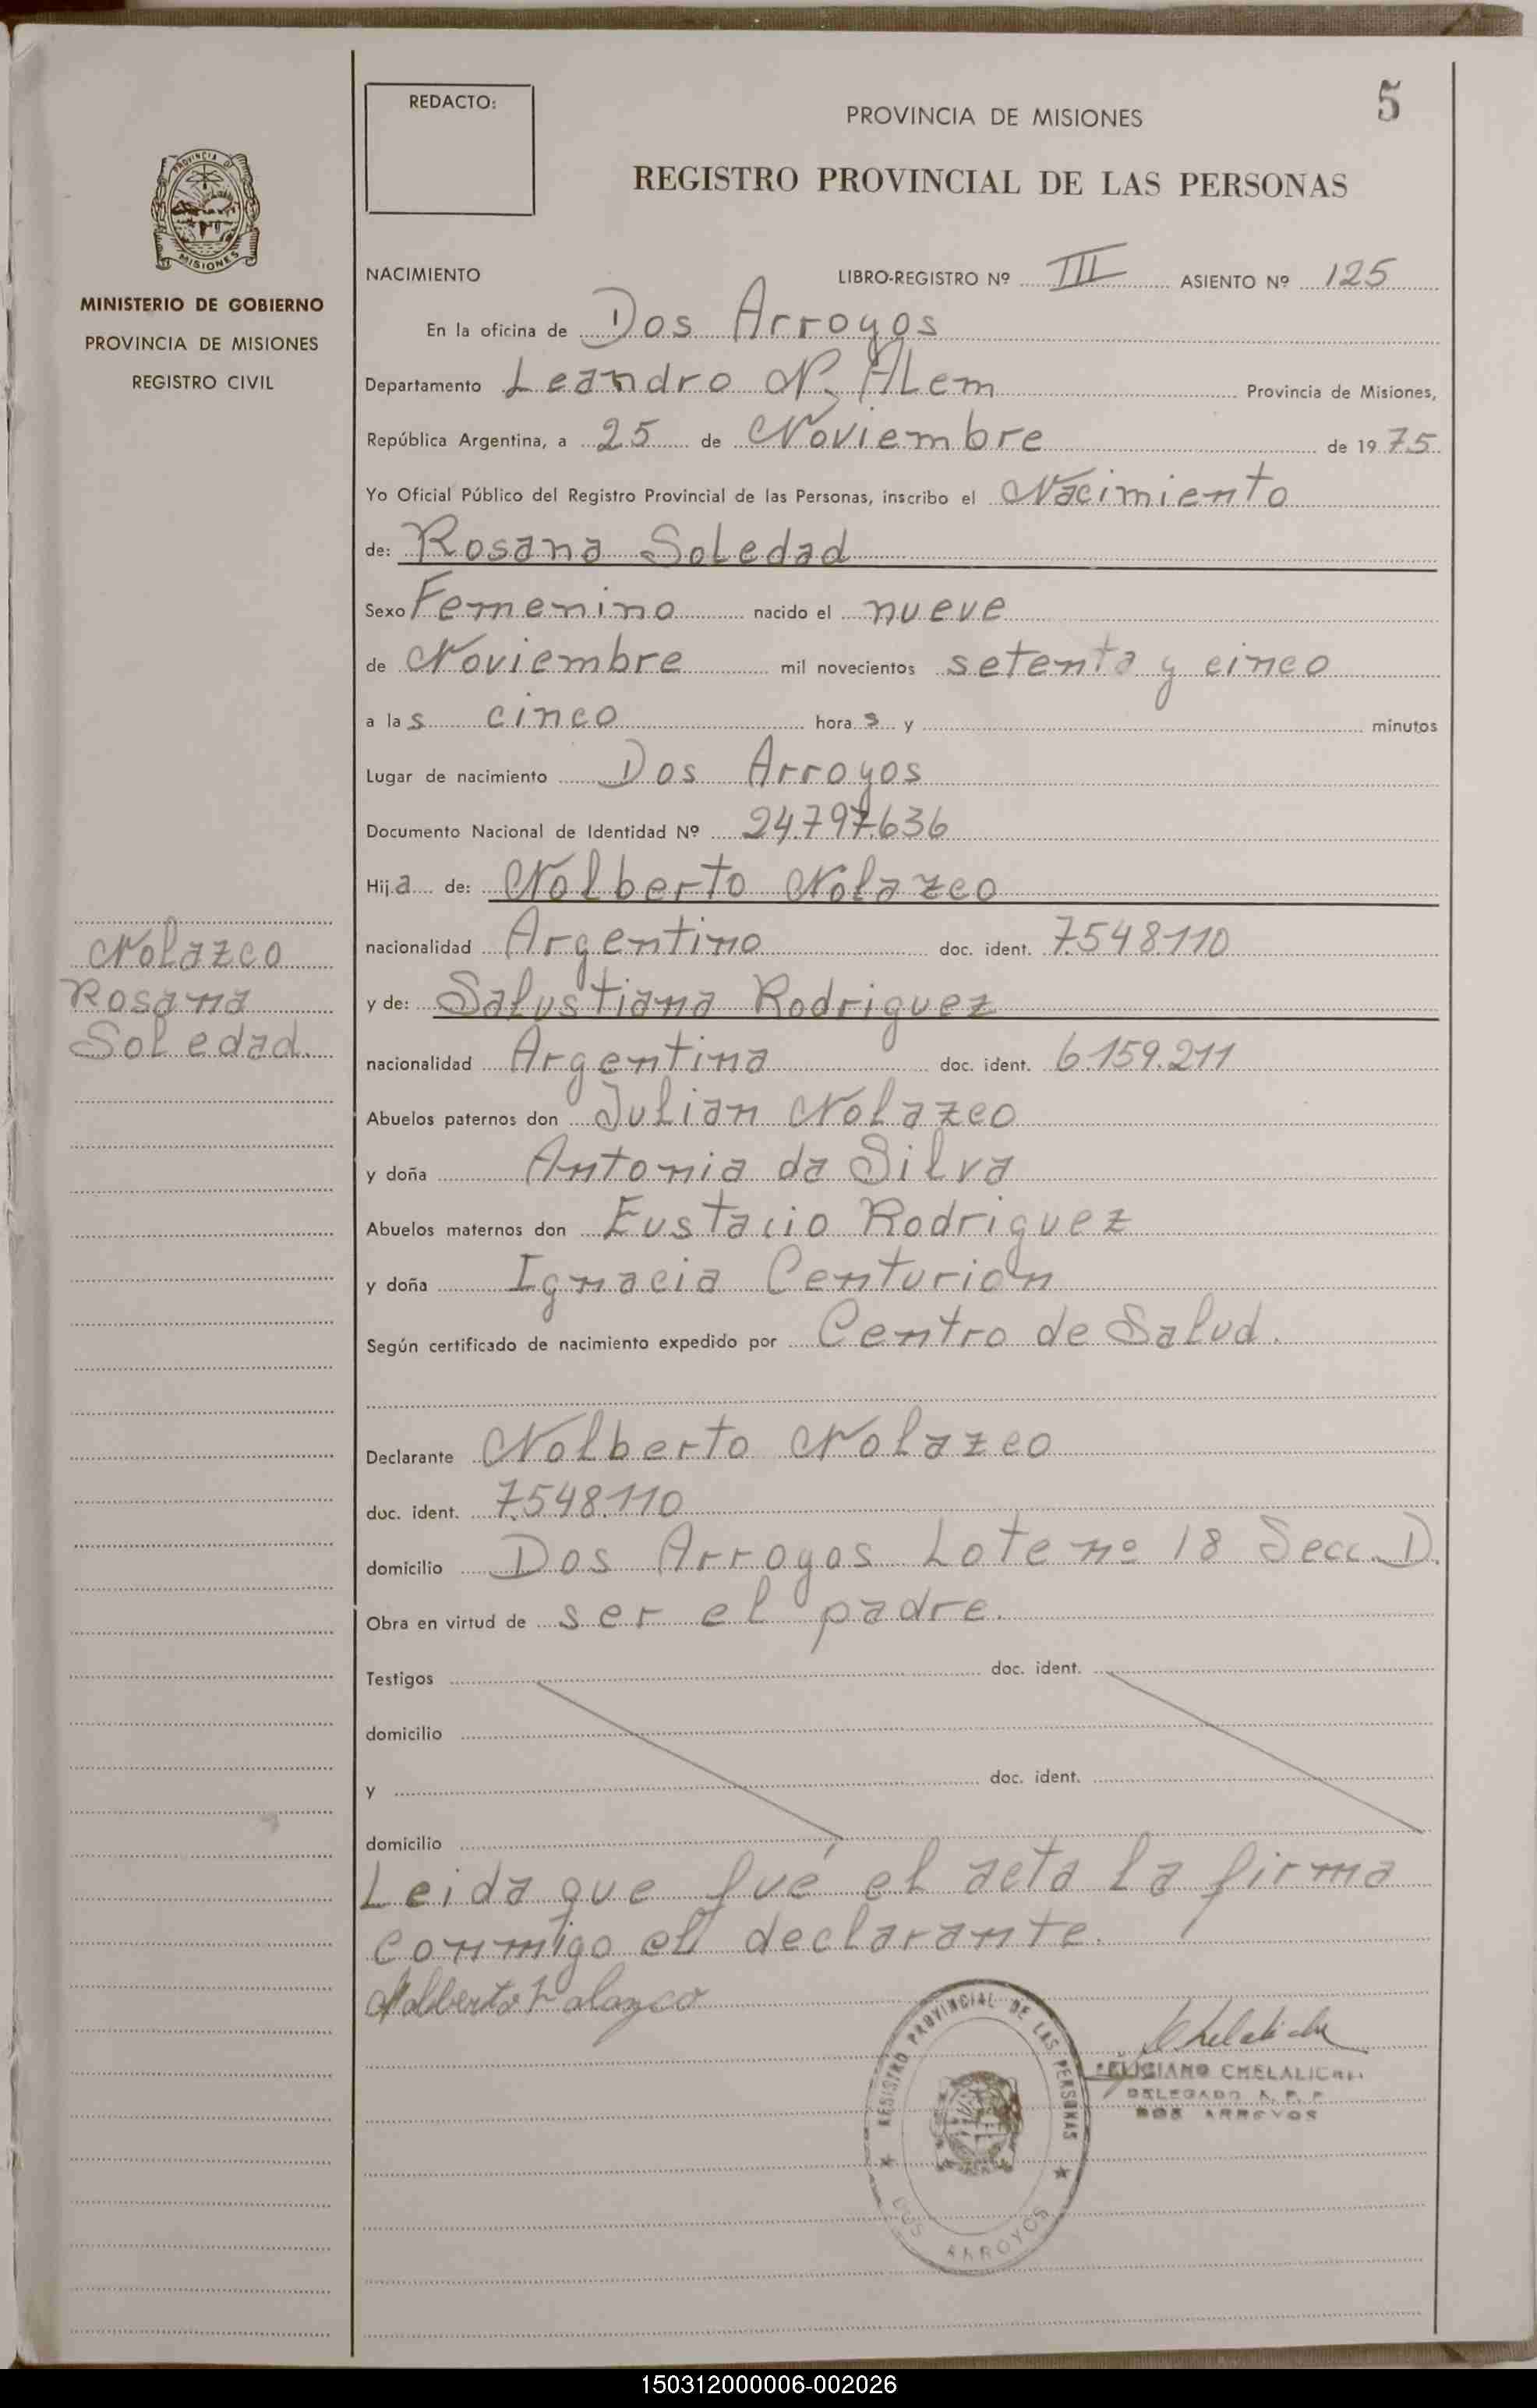 REDACTO:
PROVINCIA DE MISIONES
5
REGISTRO PROVINCIAL DE LAS PERSONAS
PROVINCIA DE
MISIONES
MINISTERIO DE GOBIERNO
PROVINCIA DE MISIONES
REGISTRO CIVIL
NACIMIENTO LIBRO-REGISTRO Nº III ASIENTO Nº 125
En la oficina de Dos Arroyos
Departamento Leandro N. ALem Provincia de Misiones,
República Argentina, a 25 de Noviembre de 1975
Yo Oficial Público del Registro Provincial de las Personas, inscribo el Nacimiento
de: Rosana Soledad
Sexo Femenino nacido el nueve
de Noviembre mil novecientos setenta y cinco
a las cinco horas y minutos
Lugar de nacimiento Dos Arroyos
Documento Nacional de Identidad Nº 24.797.636
Hija de: Nolberto Nolazco
nacionalidad Argentino doc. ident. 7.548.110
y de: Salustiana Rodriguez
nacionalidad Argentina doc. ident. 6.159.211
Abuelos paternos don Julian Nolazco
y doña Antonia da Silva
Abuelos maternos don Eustacio Rodriguez
y doña Ignacia Centurion
Según certificado de nacimiento expedido por Centro de Salud.
Declarante Nolberto Nolazco
doc. ident. 7.548.110
domicilio Dos Arroyos Lote nº 18 Secc. D.
Obra en virtud de ser el padre.
Testigos doc. ident.
domicilio
y doc. ident.
domicilio
Leida que fué el acta la firma
conmigo el declarante.
Nolazco
Rosana
Soledad.
REGISTRO PROVINCIAL DE LAS PERSONAS
DOS ARROYOS
FELICIANO
DELEGADO R. P. P.
DOS ARROYOS
150312000006-002026